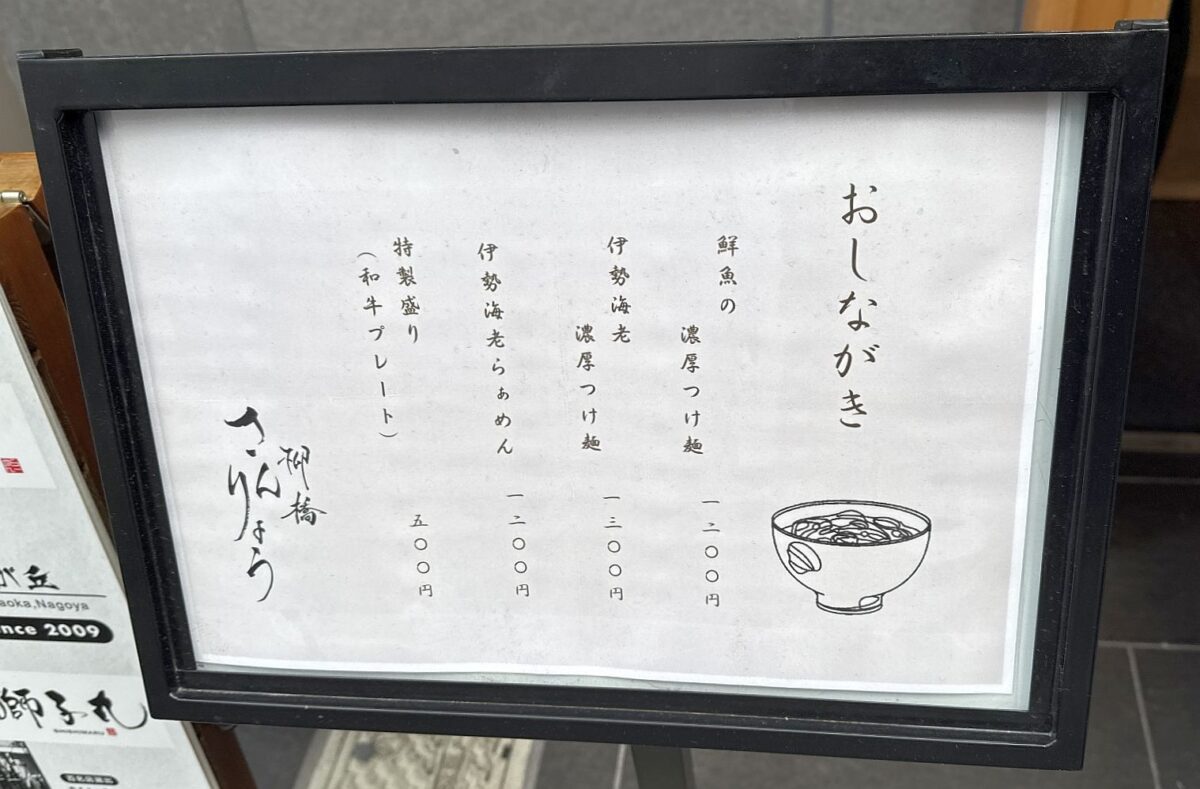 おしながき
鮮魚の
濃厚つけ麺
一二〇〇円
伊勢海老
濃厚つけ麺
一三〇〇円
伊勢海老らぁめん
一二〇〇円
特製盛り
(和牛プレート)
五〇〇円
柳橋
きんりょう
が丘
aoka,Nagoya
nce 2009
獅子丸
SHISHIMARU